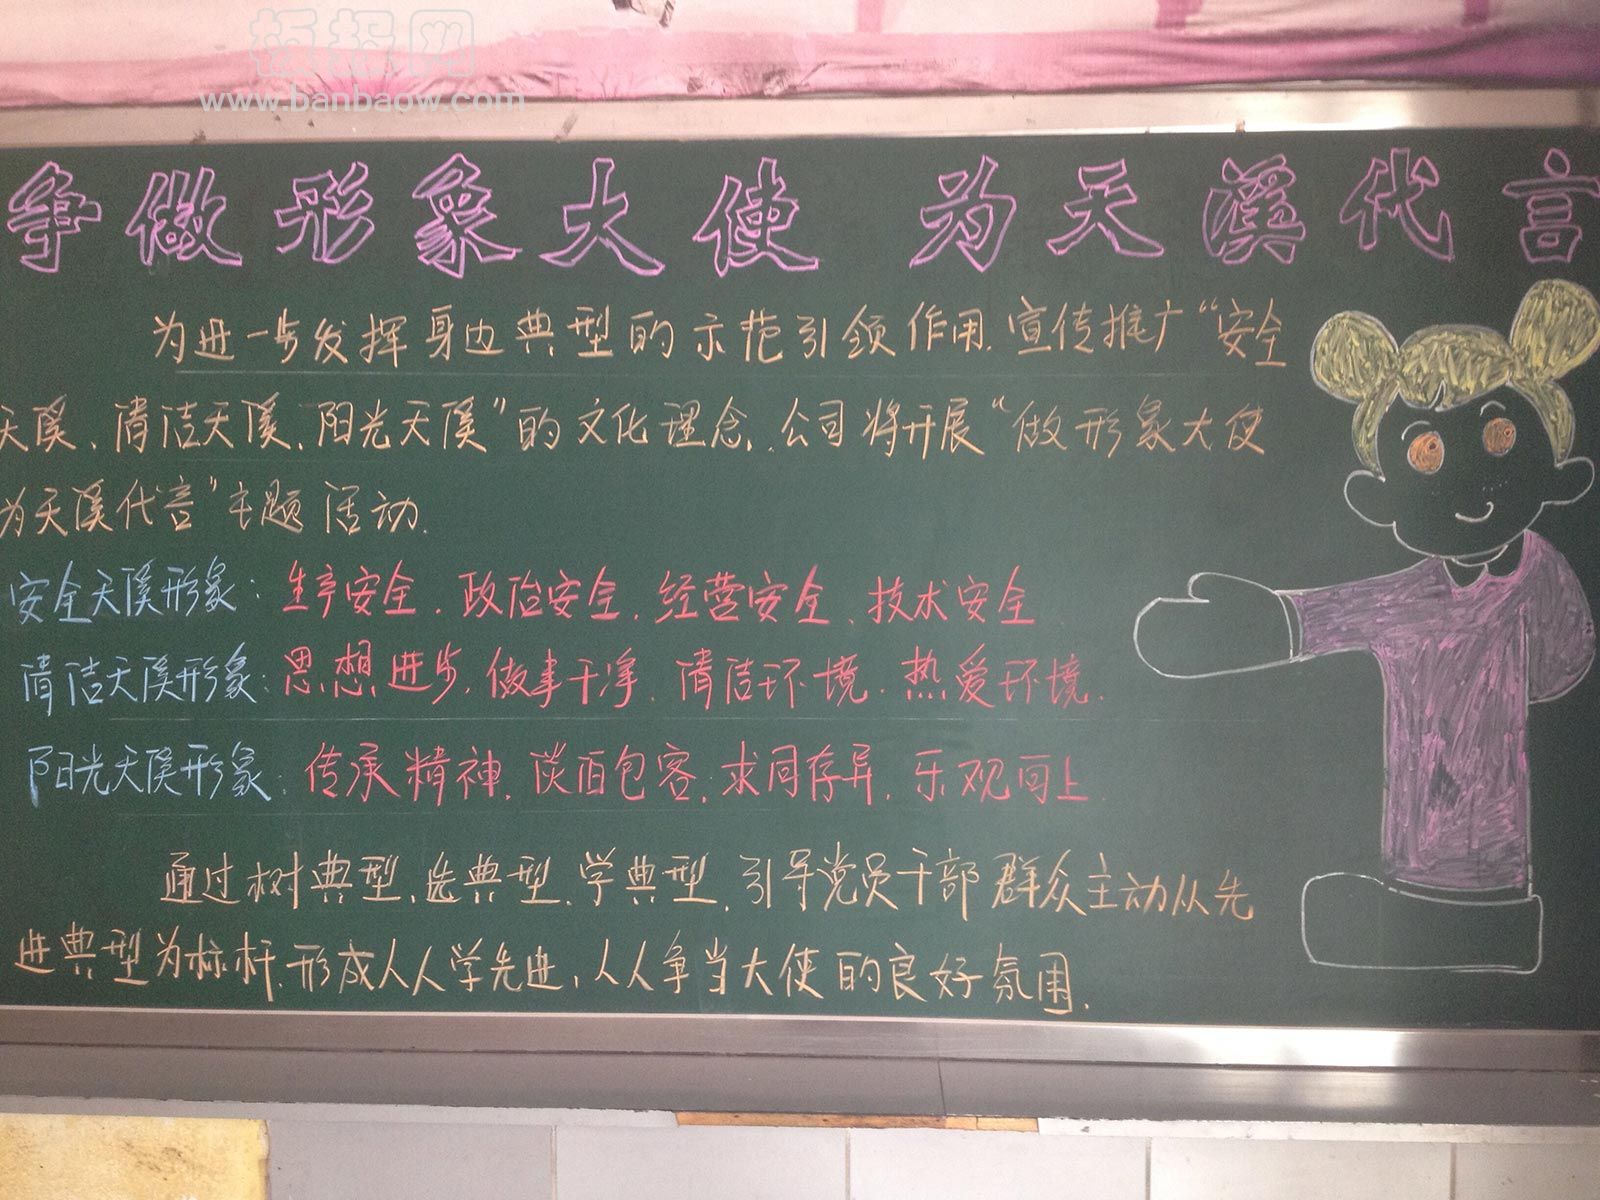 板报网
www.banbaow.com
争做形象大使 为天溪代言
为进一步发挥身边典型的示范引领作用.宣传推广“安全
天溪、清洁天溪、阳光天溪”的文化理念.公司将开展“做形象大使
为天溪代言”主题活动.
安全天溪形象:生产安全.政治安全.经营安全、技术安全
清洁天溪形象:思想进步.做事干净.清洁环境.热爱环境.
阳光天溪形象:传承精神.谈百包容.求同存异.乐观向上
通过树典型、选典型、学典型.引导党员干部群众主动从先
进典型为标杆.形成人人学先进,人人争当大使的良好氛围.